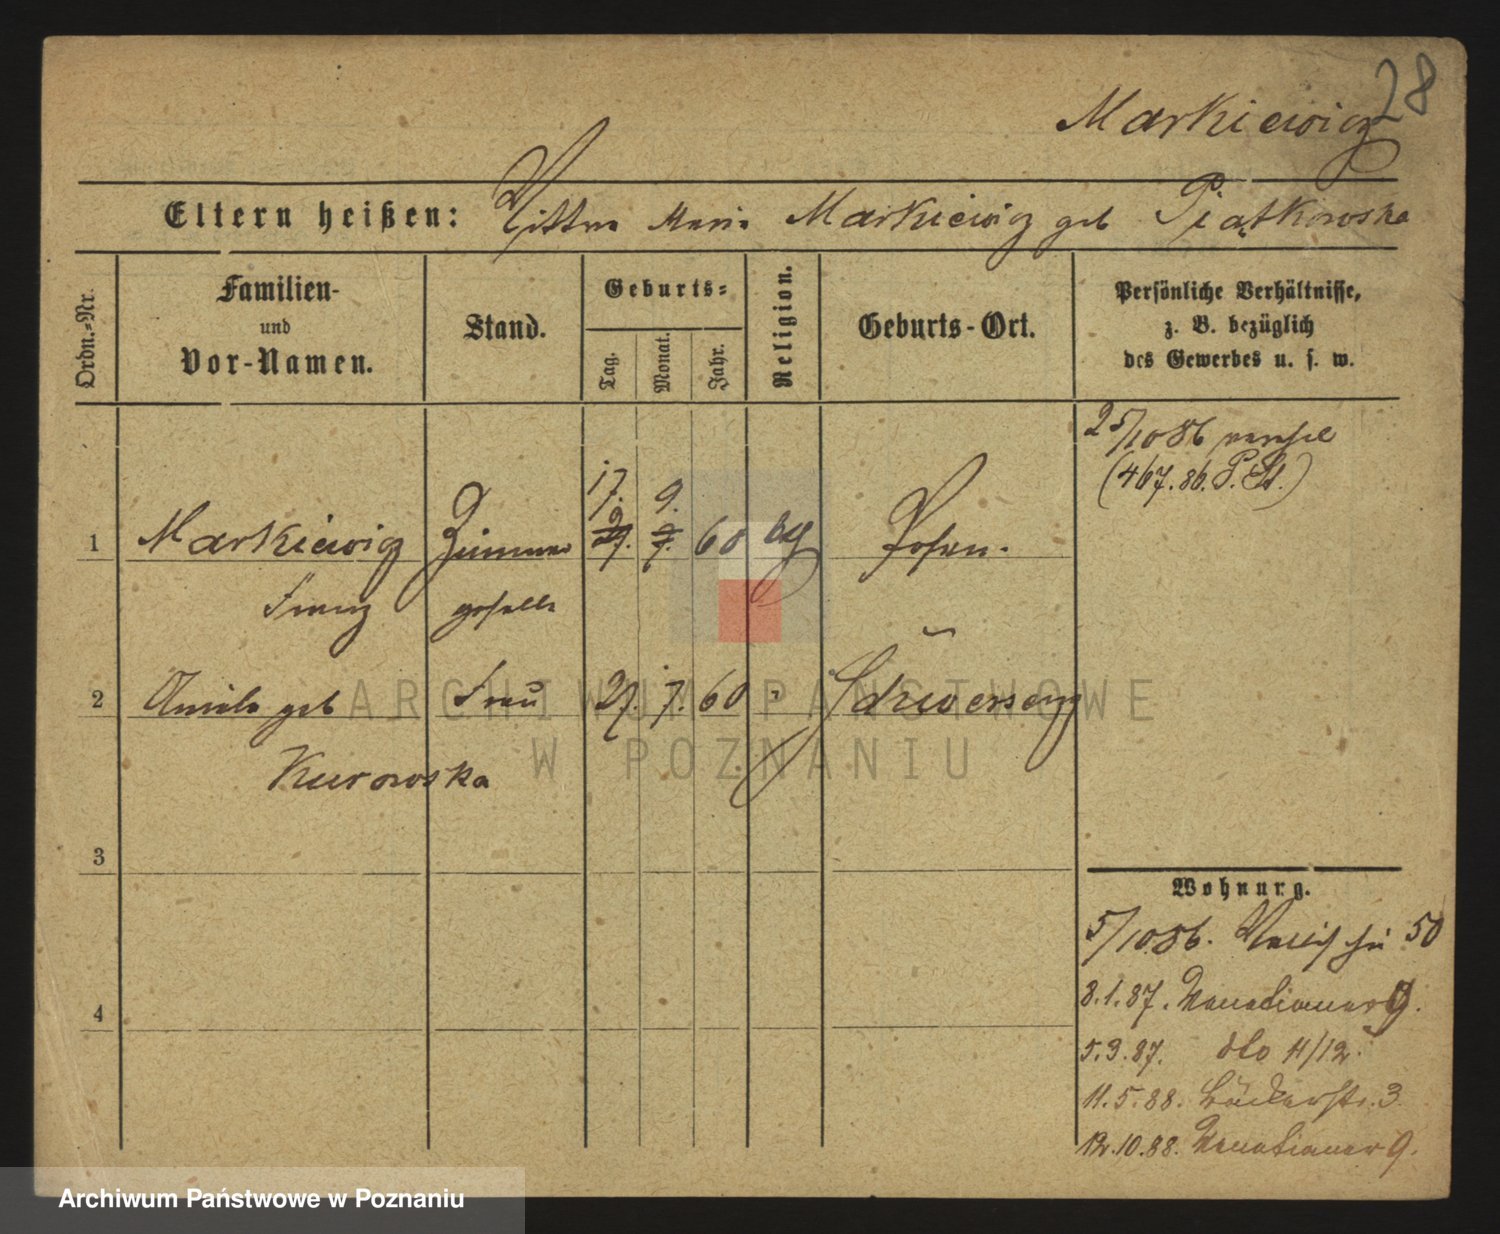 28
Markiewicz
Eltern heißen: Maria Markiewicz geb Piątkowska
Ordn.-Nr.
Familien-
und
Vor-Namen.
Stand.
Geburts-
Tag.
Monat.
Jahr.
Religion.
Geburts-Ort.
Persönliche Verhältnisse,
z. B. bezüglich
des Gewerbes u. s. w.
25/10 86
(467.86. P. St.)
17. 9.
1 Markiewicz Zimmer 27. 7. 60 kg Posen.
Franz geselle
2 geb Frau 27. 7. 60 " Schwersenz
Kurowska
3
4
Wohnung.
5/10.86. 50
8.1.87. Venetianer 9.
5.3.87. dto 11/12.
11.5.88. Bäckerstr. 3
12.10.88. Venetianer 9.
ARCHIWUM PAŃSTWOWE
W POZNANIU
Archiwum Państwowe w Poznaniu